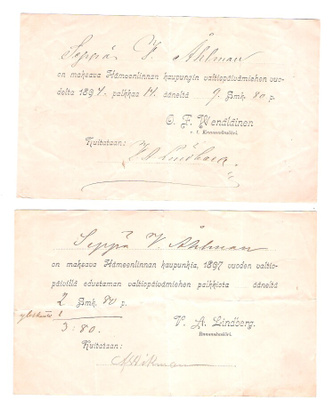 Seppä V. Åhlman
on maksava Hämeenlinnan kaupungin valtiopäivämiehen vuo-
delta 1894 palkkaa 14 ääneltä 9. Smk. 80 p.
O. F. Wenäläinen
v. t. Kunnanrahastonhoitaja
Kuitataan:
Seppä V Åhlman
on maksava Hämeenlinnan kaupunkia, 1897 vuoden valtio-
päivillä edustaman valtiopäivämiehen palkkista ääneltä
2 Smk. 80 p.
1
3:80.
V. A. Lindberg.
Kuitataan: